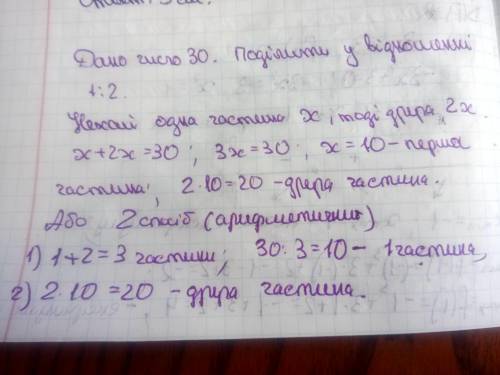 Дано число 30. Поділити у відношенні
1:2.
Нехай одна частина x, тоді друга 2x.
x+2x=30; 3x=30; x=10 – перша
частина; 2·10=20 – друга частина.
Або 2 спосіб (арифметичний)
1) 1+2=3 частини; 30:3=10 – 1 частина,
2) 2·10=20 – друга частина.